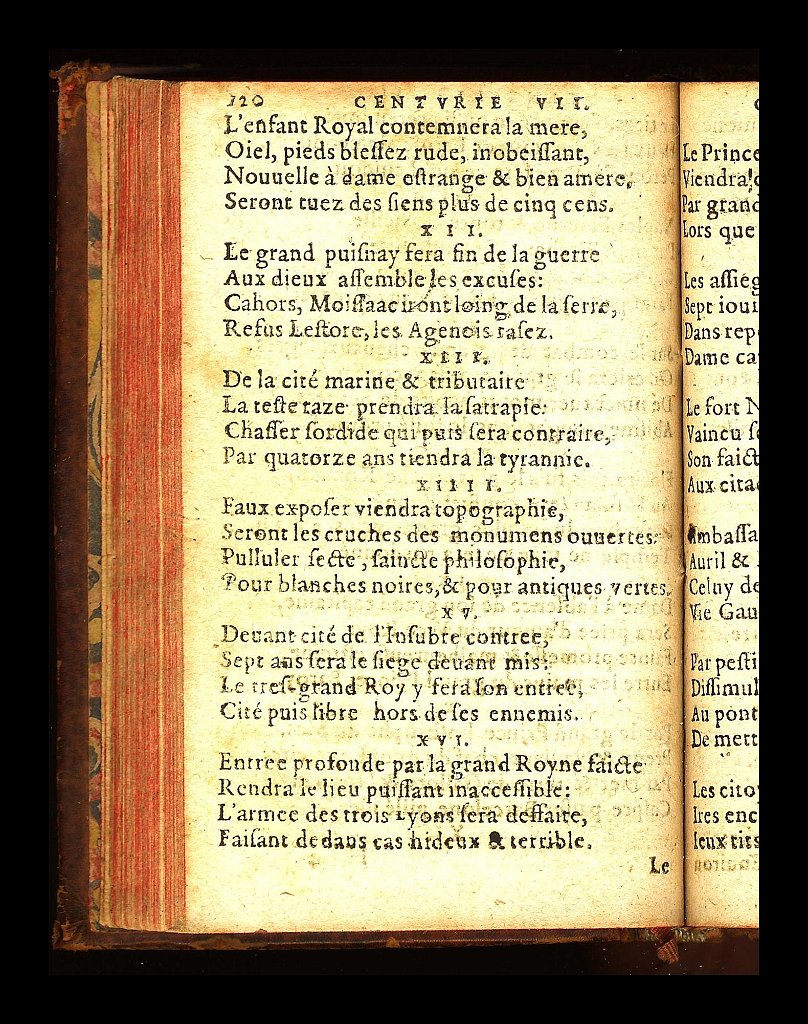 120 CENTVRIE VII.
L'enfant Royal contemnera la mere,
Oiel, pieds blessez rude, inobeissant,
Nouuelle à dame estrange & bien amere,
Seront tuez des siens plus de cinq cens.
XII.
Le grand puisnay fera fin de la guerre
Aux dieux assemble les excuses:
Cahors, Moissaac iront loing de la serre,
Refus Lestore, les Agenois rasez.
XIII.
De la cité marine & tributaire
La teste raze prendra la satrapie:
Chasser sordide qui puis sera contraire,
Par quatorze ans tiendra la tyrannie.
XIIII.
Faux exposer viendra topographie,
Seront les cruches des monumens ouuertes:
Pulluler secte, saincte philosophie,
Pour blanches noires, & pour antiques vertes.
XV.
Deuant cité de l'Insubre contree,
Sept ans sera le siege deuant mis:
Le tres-grand Roy y fera son entree,
Cité puis libre hors de ses ennemis.
XVI.
Entree profonde par la grand Royne faicte
Rendra le lieu puissant inaccessible:
L'armee des trois Lyons sera deffaite,
Faisant dedans cas hideux & terrible.
Le
Le Prince
Viendra
Par grand
Lors que
Les assieg
Sept iour
Dans rep
Dame ca
Le fort N
Vaincu
Son faict
Aux cita
Ambassa
Auril &
Celuy de
Vie Gau
Par pesti
Dissimul
Au pont
De mett
Les cito
Ires enc